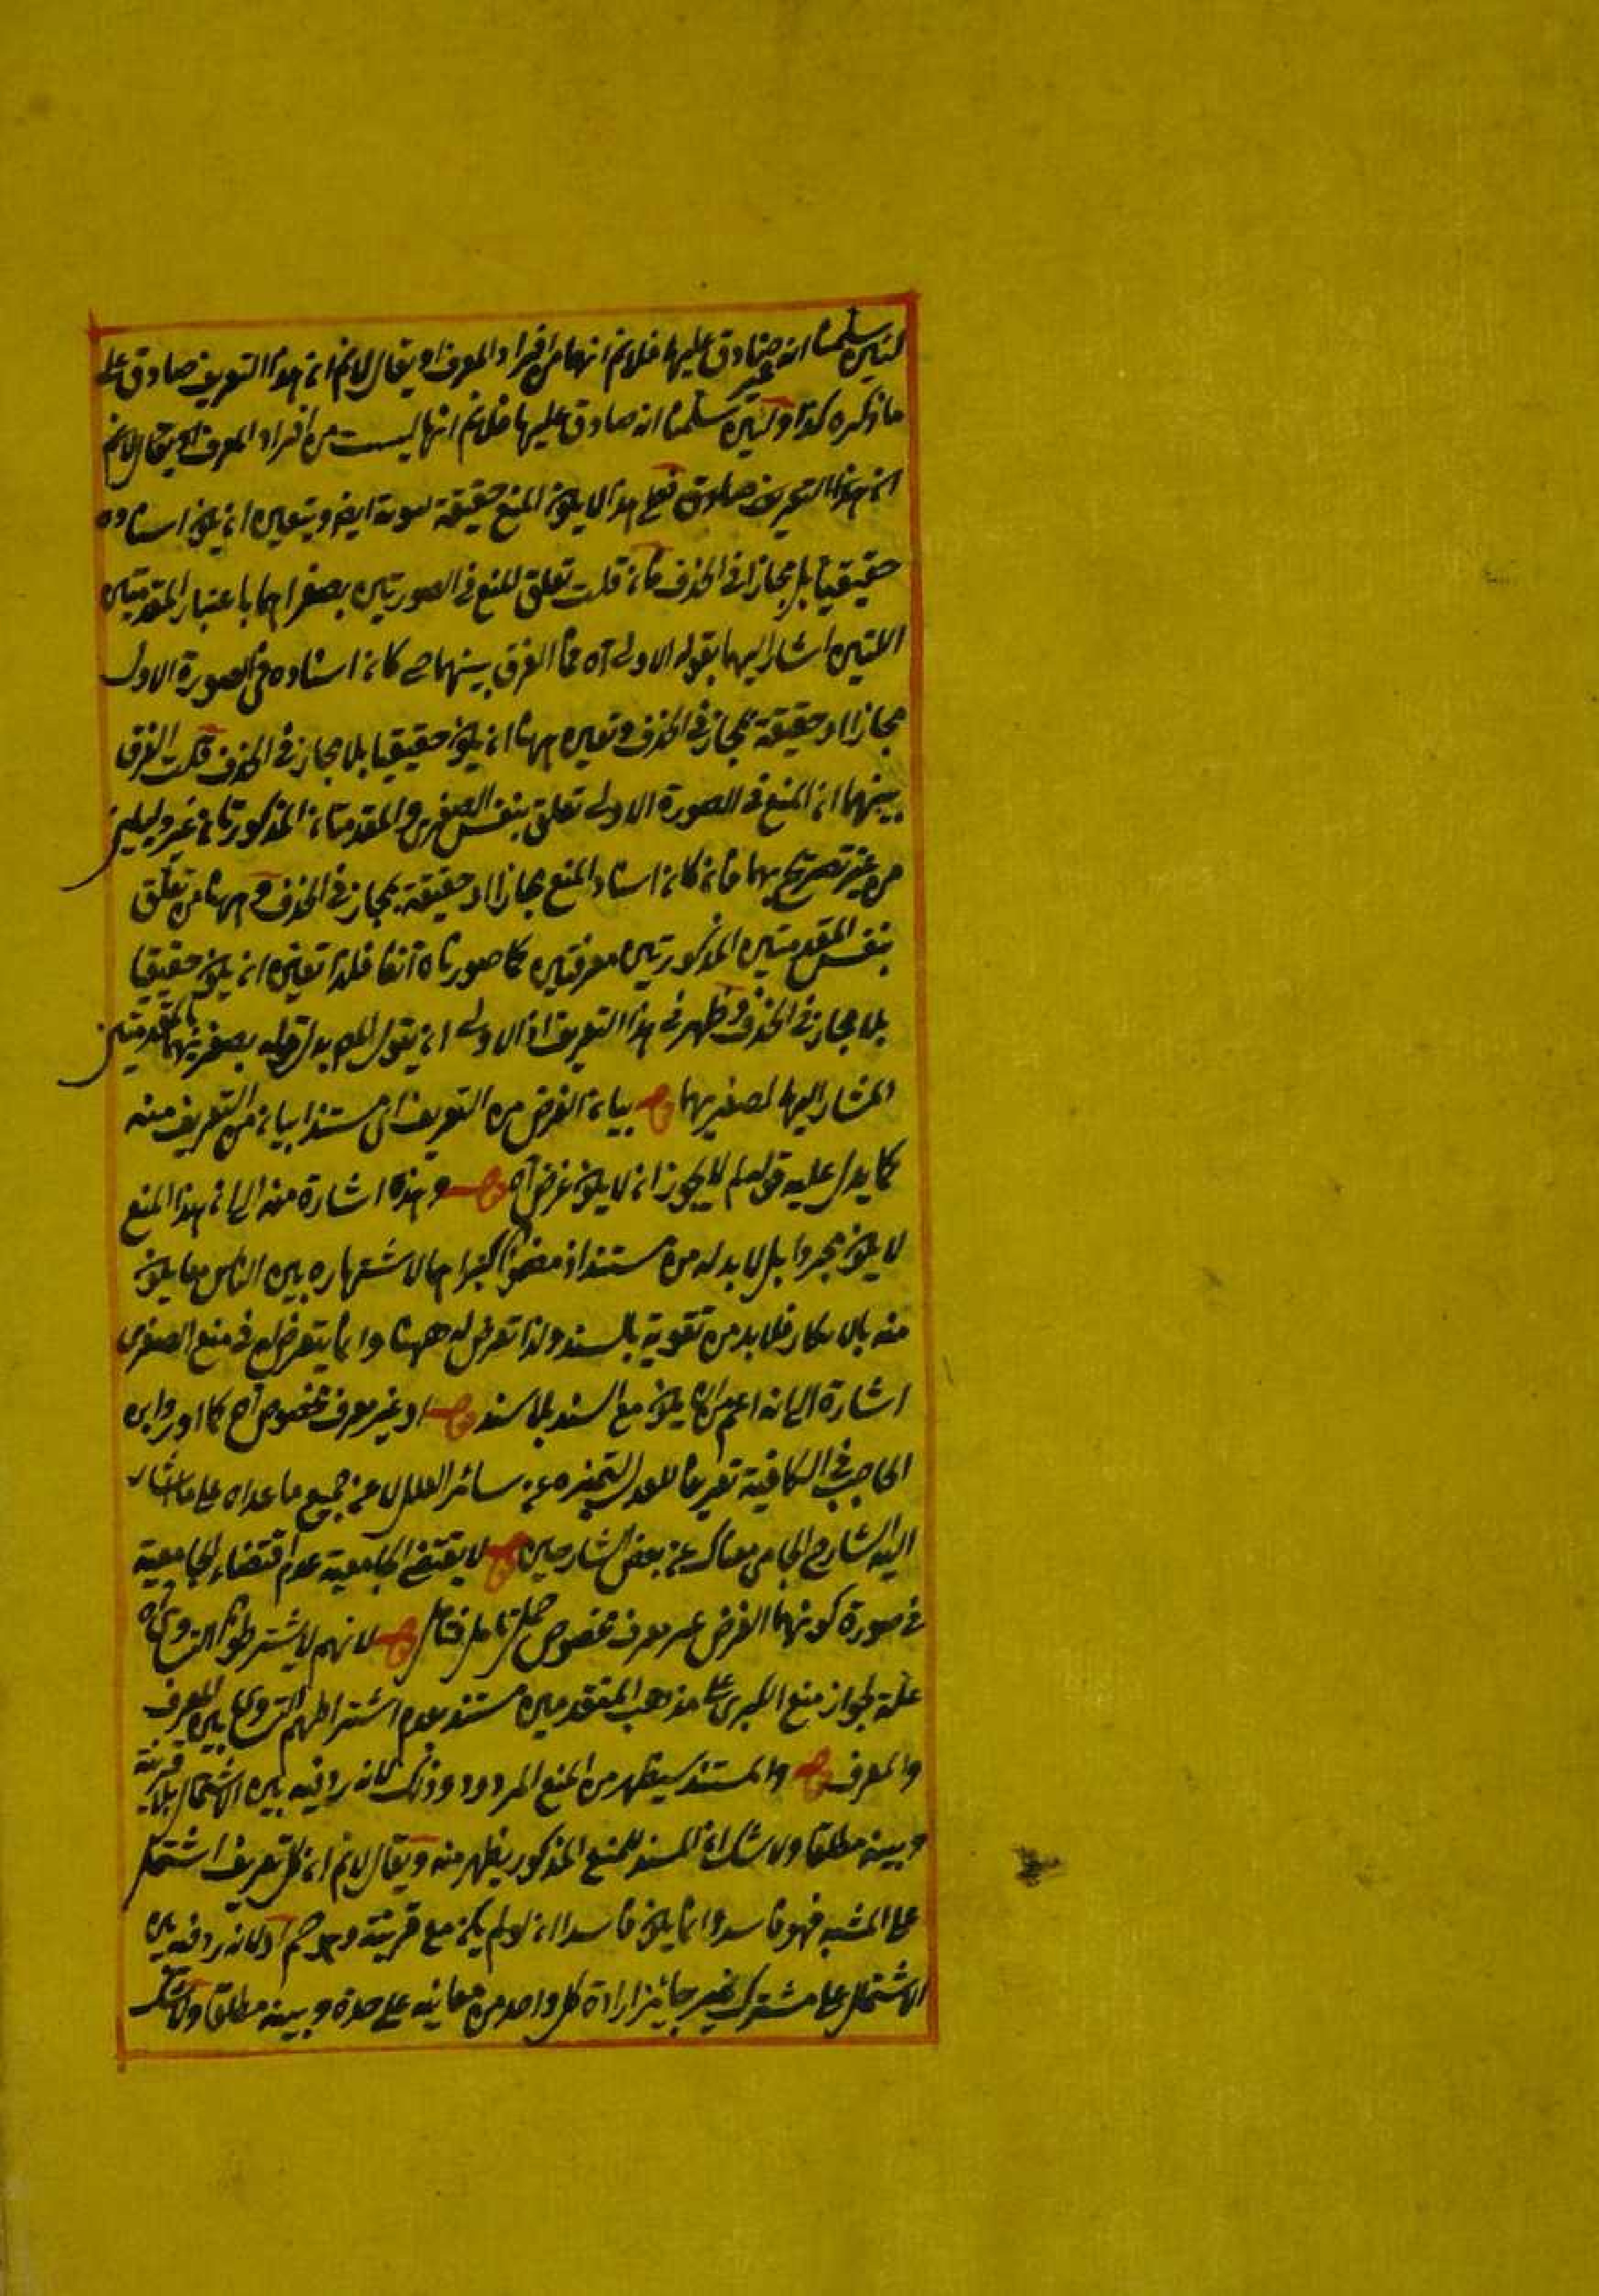 لئن سلمنا انه صادق عليها فلا نم انها من افراد المعرف او يقال لا نم ان هذا التعريف صادق على
ما ذكره كذا ولئن سلمنا انه غير صادق عليها فلا نم انها ليست من افراد المعرف او يقال لا نم
ان هذا التعريف صادق فعلى هذا لا يكون المنع حقيقة لغوية ايضا ويتعين ان يكون اسناده
حقيقيا بل مجازا في الحذف فان قلت تعلق المنع في الصورتين بصغراهما باعتبار المقدمتين
اللتين اشار اليهما بقوله الاولى اه فما الفرق بينهما حتى كان اسناده في الصورة الاولى
مجازا او حقيقة بمجاز في الحذف وتعين ههنا ان يكون حقيقيا بلا مجاز في الحذف قلت الفرق
بينهما ان المنع في الصورة الاولى تعلق بنفس الصغرى والمقدمتان المذكورتان غير دليلين
من غير تصريح بهما فان كان اسناد المنع مجازا او حقيقة بمجاز في الحذف وههنا من تعلق
بنفس المقدمتين المذكورتين معرفتين كما صورناه آنفا فلذا تعين ان يكون حقيقيا
بلا مجاز في الحذف وظهر في هذا التعريف اذ الاولى ان يقول المص بدل قوله بصغريهما بالمقدمتين
المشار اليهما لصغريهما قوله بيان الغرض من التعريف اى مستندا بيان من التعريف منه
كما يدل عليه قوله لم لا يجوز ان لا يكون غرض اه قوله وهذه اشارة منه الى ان هذا المنع
لا يكون مجردا بل لا بد له من مستند اذ مضمون كبراهما لاشتهاره بين الناس مما يكون
منعه بالانكار فلا بد من تقوية بالسند ولذا تعرض له ههنا وانما يتعرض له في منع الصغرى
اشارة الى انه اعم من ان يكون مع السند بلا سند قوله او غير معرف مخصوص اه كما اورد ابن
الحاجب في الكافية تعريفا للعدل لتميزه عن سائر العلل لا عن جميع ما عداه على ما اشار
اليه الشارح الجامى معناك عن بعض الشارحين قوله لا يقتضى الجامعية عدم اقتضاء الجامعية
في صورة كونهما الغرض غير معرف مخصوص محل تامل فتامل قوله لانهم لا يشترطون التساوى اه
علة لجواز منع الكبرى على مذهب المتقدمين مستند بعدم اشتراطهم التساوى بين المعرف
والمعرف قوله والمستند سيظهر من المنع المردود وذلك لانه ردفيه بين الاشتمال بلا قرينة
وبينه مطلقا ولا شك ان المسند للمنع المذكور يظهر منه ويقال لا نم ان كل تعريف اشتمل
على المشبه فهو فاسد وانما يكون فاسدا ان لو لم يكن مع قرينة وهو مم اذ لانه ردفيه بين
الاشتمال على مشترك بغير جائز ارادة كل واحد من معانيه على حدة وبينه مطلقا ولا شك